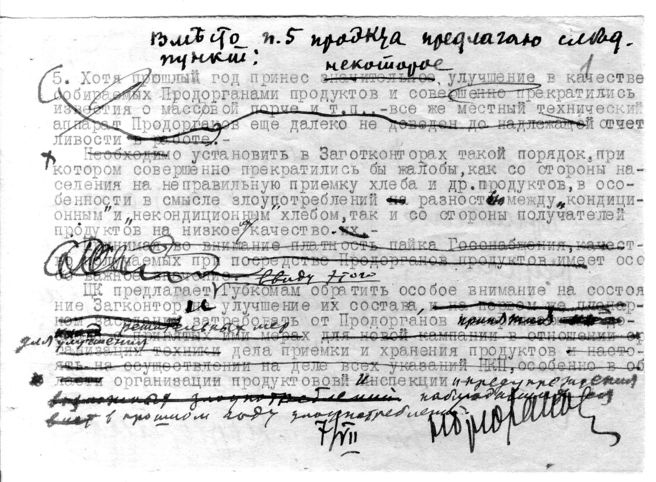 Вмѣсто п.5 проэкта предлагаю след.
пункт:
некоторое
5. Хотя прошлый год принес значительное улучшение в качестве
собираемых Продорганами продуктов и совершенно прекратились
известия о массовой порче и т.п.,-все же местный технический
аппарат Продорганов еще далеко не доведен до надлежащей отчет
ливости в работе.-
Необходимо установить в Заготконторах такой порядок,при
котором совершенно прекратились бы жалобы,как со стороны на-
селения на неправильную приемку хлеба и др.продуктов,в осо-
бенности в смысле злоупотреблений на разности между „кондици-
онным" и „некондиционным" хлебом,так и со стороны получателей
продуктов на низкое качество их.-
Принимая во внимание платность пайка Госснабжения,качест-
принимаемых при посредстве Продорганов продуктов имеет осо
ввиду этого
ЦК предлагает Губкомам обратить особое внимание на состоя
ние Загконтор и улучшение их состава,
затребовать от Продорганов принятия
решительных мер
мерах для новой кампании в отношении ор
для улучшения
ганизации техники дела приемки и хранения продуктов и насто-
ять на осуществлении на деле всех указаний НКП,особенно в об
ласти организации продуктовой инспекции и предупреждения
злоупотреблений
в прошлом году злоупотреблений.
7/VII